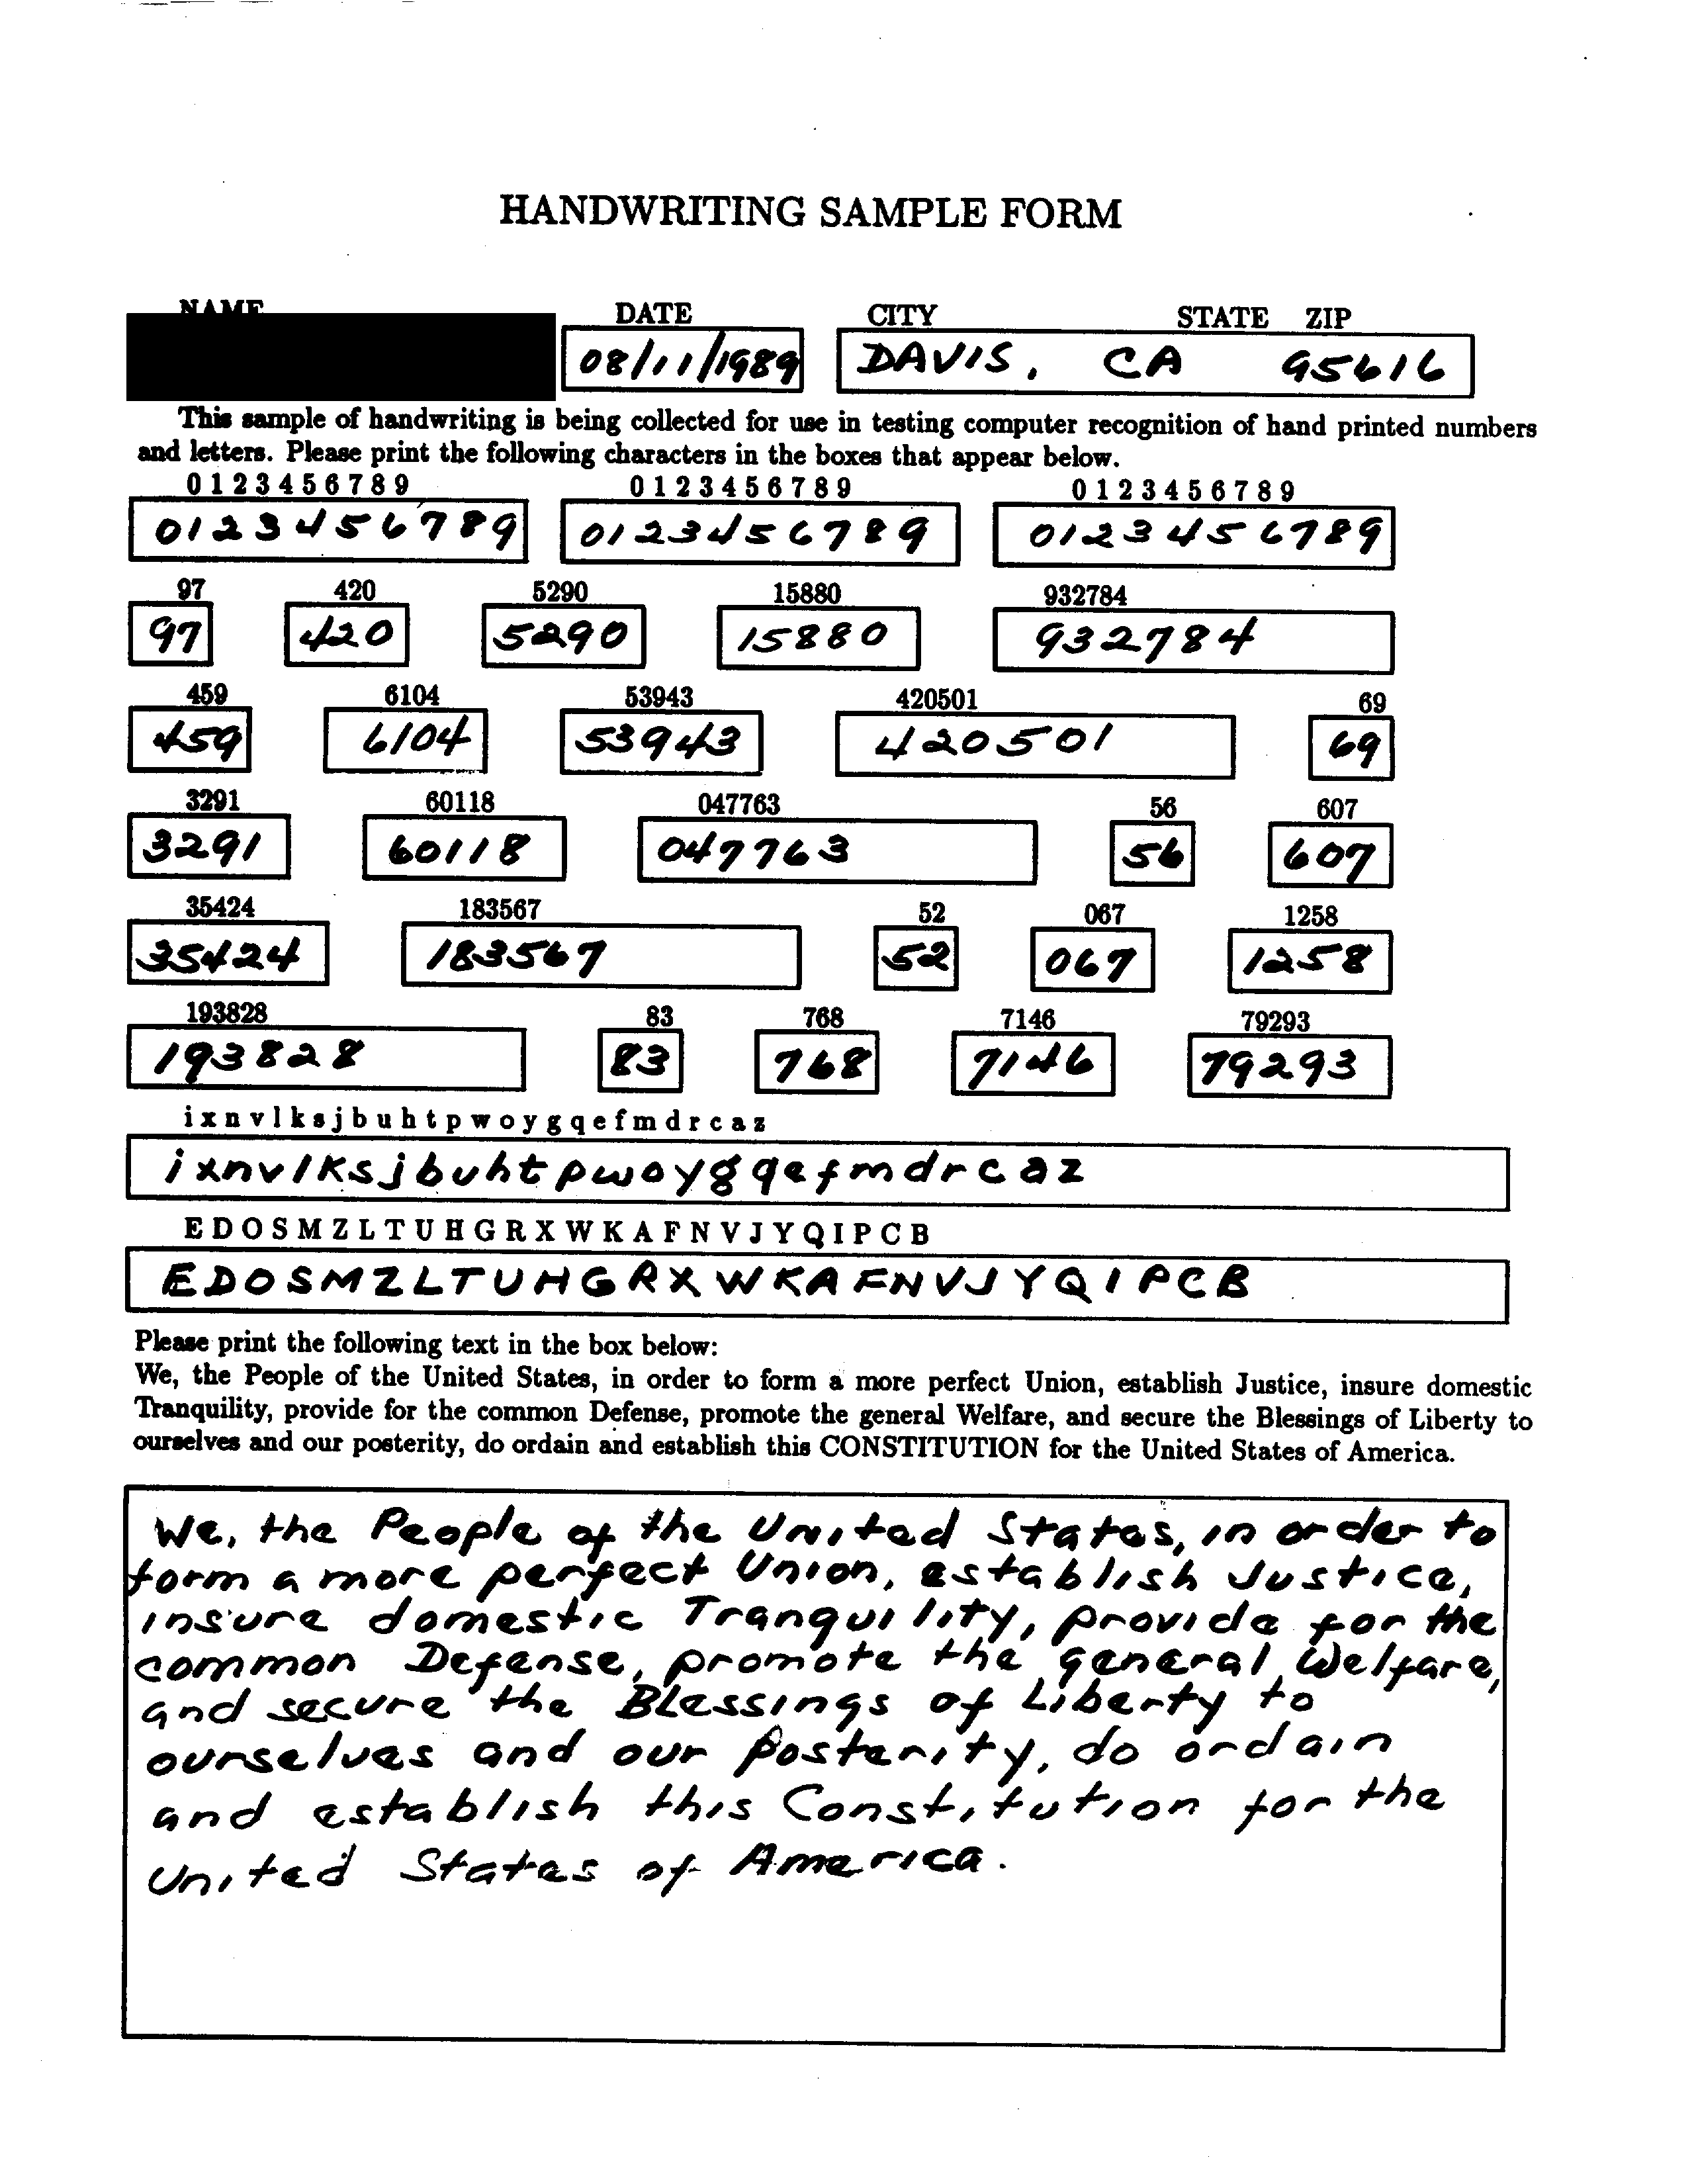 HANDWRITING SAMPLE FORM
NAME DATE CITY STATE ZIP
08/11/1989 DAVIS, CA 95616
This sample of handwriting is being collected for use in testing computer recognition of hand printed numbers
and letters. Please print the following characters in the boxes that appear below.
0 1 2 3 4 5 6 7 8 9 0 1 2 3 4 5 6 7 8 9 0 1 2 3 4 5 6 7 8 9
0123456789 0123456789 0123456789
97 420 5290 15880 932784
97 420 5290 15880 932784
459 6104 53943 420501 69
459 6104 53943 420501 69
3291 60118 047763 56 607
3291 60118 047763 56 607
35424 183567 52 067 1258
35424 183567 52 067 1258
193828 83 768 7146 79293
193828 83 768 7146 79293
i x n v l k s j b u h t p w o y g q e f m d r c a z
i x n v l k s j b u h t p w o y g q e f m d r c a z
E D O S M Z L T U H G R X W K A F N V J Y Q I P C B
E D O S M Z L T U H G R X W K A F N V J Y Q I P C B
Please print the following text in the box below:
We, the People of the United States, in order to form a more perfect Union, establish Justice, insure domestic
Tranquility, provide for the common Defense, promote the general Welfare, and secure the Blessings of Liberty to
ourselves and our posterity, do ordain and establish this CONSTITUTION for the United States of America.
We, the People of the United States, in order to
form a more perfect Union, establish Justice,
insure domestic Tranquility, provide for the
common Defense, promote the general Welfare,
and secure the Blessings of Liberty to
ourselves and our posterity, do ordain
and establish this Constitution for the
United States of America.